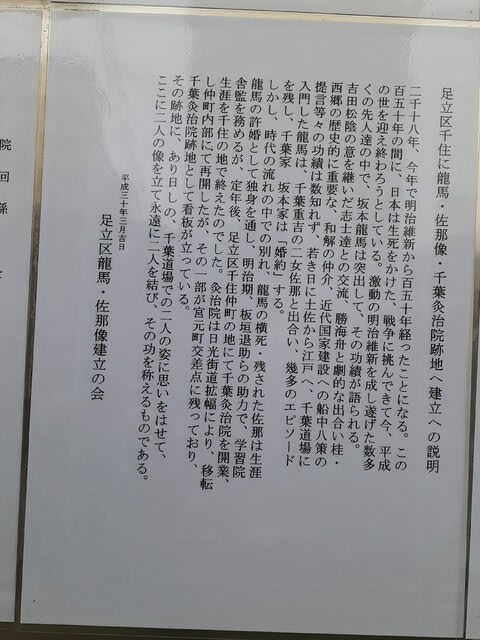 足立区千住に龍馬・佐那像・千葉灸治院跡地へ建立への説明
二千十八年、今年で明治維新から百五十年経ったことになる。この
百五十年の間に、日本は生死をかけた、戦争に挑んできて今、平成
の世を迎え終わろうとしている。激動の明治維新を成し遂げた数多
くの先人達の中で、坂本龍馬は突出して、その功績が語られる。
吉田松陰の意を継いだ志士達との交流、勝海舟と劇的な出合い桂・
西郷の歴史的に重要な、和解の仲介、近代国家建設への船中八策の
提言等々の功績は数知れず、若き日に土佐から江戸へ、千葉道場に
入門した龍馬は、千葉重吉の二女佐那と出合い、幾多のエピソード
を残し、千葉家、坂本家は「婚約」する。
しかし、時代の流れの中での別れ、龍馬の横死・残された佐那は生涯
龍馬の許婚として独身を通し、明治期、板垣退助らの助力で、学習院
舎監を務めるが、定年後、足立区千住仲町の地にて千葉灸治院を開業、
生涯を千住の地で終えたのでした。灸治院は日光街道拡幅により、移転
し仲町内部にて再開したが、その一部が宮元町交差点に残っており、
千葉灸治院跡地として看板が立っている。
その跡地に、あり日しの、千葉道場での二人の姿に思いをはせて、
ここに二人の像を立て永遠に二人を結び、その功を称えるものである。
平成三十年三月吉日
足立区龍馬・佐那像建立の会
院
回
孫